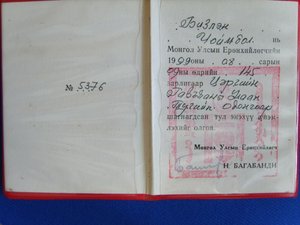 № 5376
Чоймбол нь
Монгол Улсын Ерөнхийлөгчийн
1999 оны 08. сарын
өдрийн 145
зарлигаар Цэргийн
Гавьяаны Улаан
Тугийн Одонгоор
шагнагдсан тул энэхүү үнэм-
лэхийг олгов.
Монгол Улсын Ерөнхийлөгч
Н БАГАБАНДИ